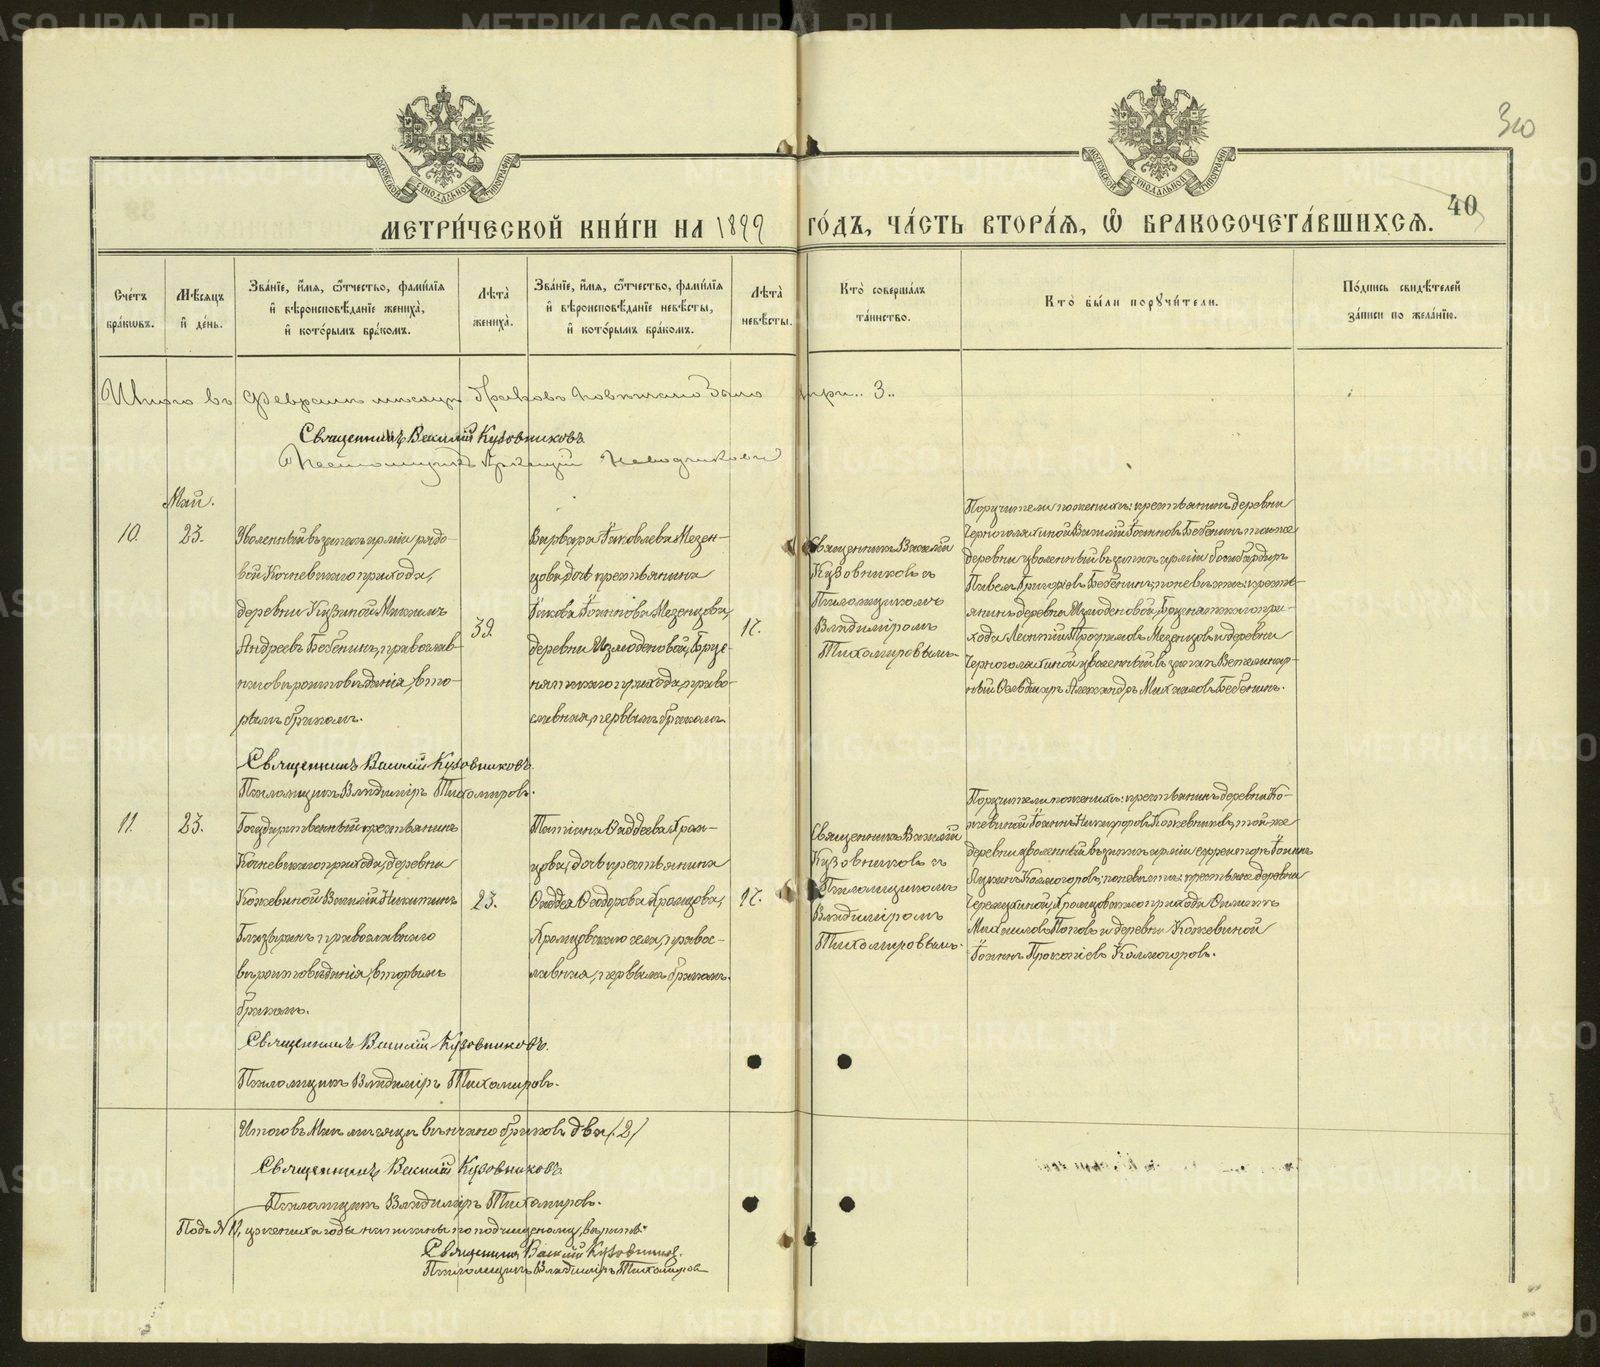 30
40
МОСКОВСКОЙ СѴНОДАЛЬНОЙ ТИПОГРАФІИ
МОСКОВСКОЙ СѴНОДАЛЬНОЙ ТИПОГРАФІИ
МЕТРИ́ЧЕСКОЙ КНИ́ГИ НА 1899 ГО́ДЪ, ЧА́СТЬ ВТОРА́Ѧ, Ѽ БРАКОСОЧЕТА́ВШИХСѦ.
Сче́тъ бра́кѡвъ.
Мѣ́сѧцъ и҆ де́нь.
Зва́нїе, и҆́мѧ, ѻ҆́тчество, фами́лїѧ и҆ вѣроисповѣ́данїе жениха̀, и҆ кото́рымъ бра́комъ.
Лѣ́та̀ жениха̀.
Зва́нїе, и҆́мѧ, ѻ҆́тчество, фами́лїѧ и҆ вѣроисповѣ́данїе невѣ́сты, и҆ кото́рымъ бра́комъ.
Лѣ́та̀ невѣ́сты.
Кто̀ соверша́лъ та́инство.
Кто̀ бы́ли порꙋчи́тели.
По́дпись свидѣ́телей за́писи по жела́нїю.
Итого въ Февралѣ мѣсяцѣ браковъ повѣнчано было три.. 3..
Священникъ Василій Кузовниковъ
Псаломщикъ
Май.
10.
23.
Уволенный въ запасъ арміи рядо-
вой Кочневскаго прихода,
деревни Кузиной Михаилъ
Андреевъ Бебенинъ, православ-
наго вѣроисповѣданія, вто-
рымъ бракомъ.
39.
Варвара Іаковлева Мезен-
цова, дочь крестьянина
Іакова Іоаннова Мезенцова,
деревни Измоденовой, Бруснятскаго прихода, право-
славная, первымъ бракомъ
17.
Священникъ Василій
Кузовниковъ съ
Псаломщикомъ
Владиміромъ
Тихомировымъ.
Поручители по женихѣ: крестьянинъ деревни
Черноголовиной Василій Іоанновъ Бебенинъ, той же
деревни уволенный въ запасъ арміи бомбардиръ
Павелъ Григорьевъ Бебенинъ; по невѣстѣ: кресть-
янинъ деревни Измоденовой, Бруснятскаго при-
хода Леонтій Мезенцовъ и деревни
уволенный въ запасъ Ветеринар-
ный Фельдшеръ Александръ Михаиловъ Бебенинъ.
Священникъ Василій Кузовниковъ.
Псаломщикъ Владиміръ Тихомировъ.
11.
23.
Государственный крестьянинъ
Кочневскаго прихода, деревни
Кожевиной Василій Никитинъ
Глазыринъ православнаго
вѣроисповѣданія, вторымъ
бракомъ.
23.
Татіана Фаддеева Храм-
цова, дочь крестьянина
Фаддея Феодорова Храмцова,
Храмцовскаго села, правос-
лавная, первымъ бракомъ.
17.
Священникъ Василій
Кузовниковъ съ
Псаломщикомъ
Владиміромъ
Тихомировымъ.
Поручители по женихѣ: крестьянинъ деревни Ко-
жевиной Іоаннъ Никифоровъ Кожевниковъ, той же
деревни уволенный въ запасъ арміи ефрейторъ Іоаннъ
Колмогоровъ; по невѣстѣ: крестьяне деревни
Храмцовскаго прихода Филиппъ
Михаиловъ Поповъ и деревни Кожевиной
Іоаннъ Прокопіевъ Колмогоровъ.
Священникъ Василій Кузовниковъ.
Псаломщикъ Владиміръ Тихомировъ.
Итого въ Маѣ мѣсяцѣ вѣнчано браковъ два /2/
Священникъ Василій Кузовниковъ.
Псаломщикъ Владиміръ Тихомировъ.
Подъ N 11, у жениха годы написаны по подчищеному, вѣрить.
Священникъ Василій Кузовниковъ.
Псаломщикъ Владиміръ Тихомировъ
METRIKI.GASO-URAL.RU